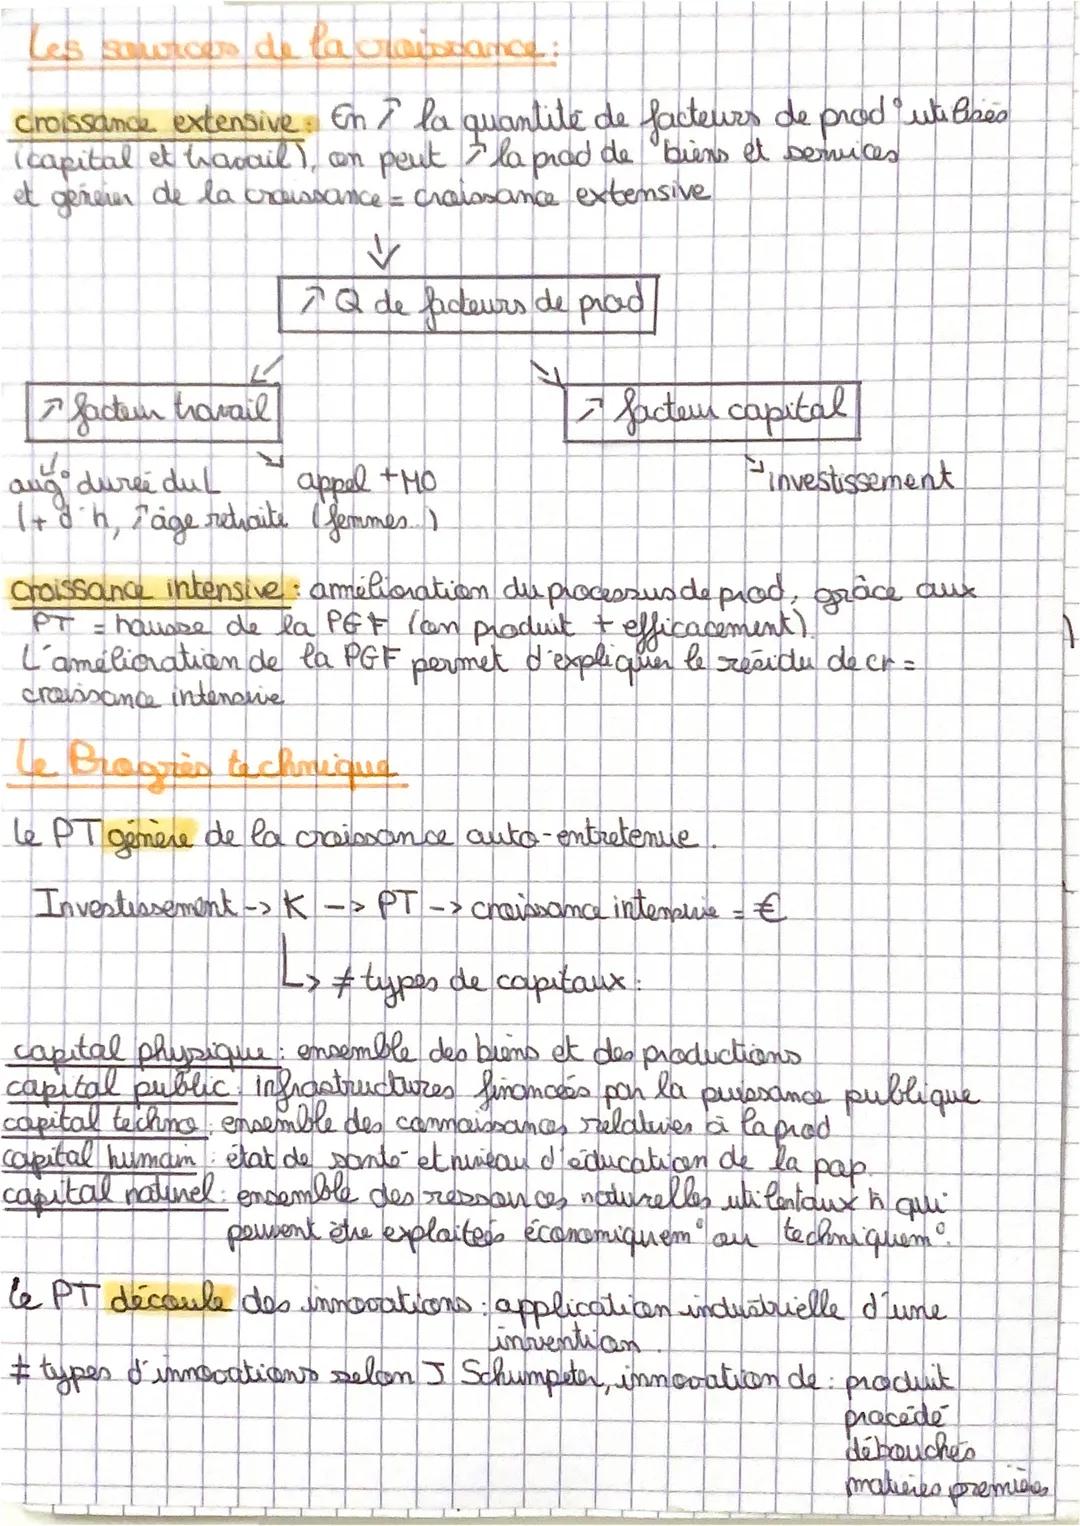 Les sources de la croissance :
croissance extensive : En ↗ la quantité de facteurs de prod° utilisés
(capital et travail), on peut ↗ la prod de biens et services
et générer de la croissance = croissance extensive
↗ Q de facteurs de prod
↗ facteur travail
↗ facteur capital
aug° durée du L
appel + MO
investissement
(+ d'h, ↗ âge retraite
(femmes..)
croissance intensive : amélioration du processus de prod, grâce aux
PT = hausse de la PGF (on produit + efficacement).
L'amélioration de la PGF permet d'expliquer le résidu de cr =
croissance intensive
Le Progrès technique
le PT génère de la croissance auto-entretenue.
Investissement -> K -> PT -> croissance intensive = €
↳ ≠ types de capitaux :
capital physique : ensemble des biens et des productions
capital public : infrastructures financées par la puissance publique
capital techno : ensemble des connaissances relatives à la prod
capital humain : état de santé et niveau d'éducation de la pop.
capital naturel : ensemble des ressources naturelles utilentaux h qui
peuvent être exploités économiquem° ou techniquem°.
le PT découle des innovations : application industrielle d'une
invention.
≠ types d'innovations selon J Schumpeter, innovation de : produit
procédé
débouchés
matières premières